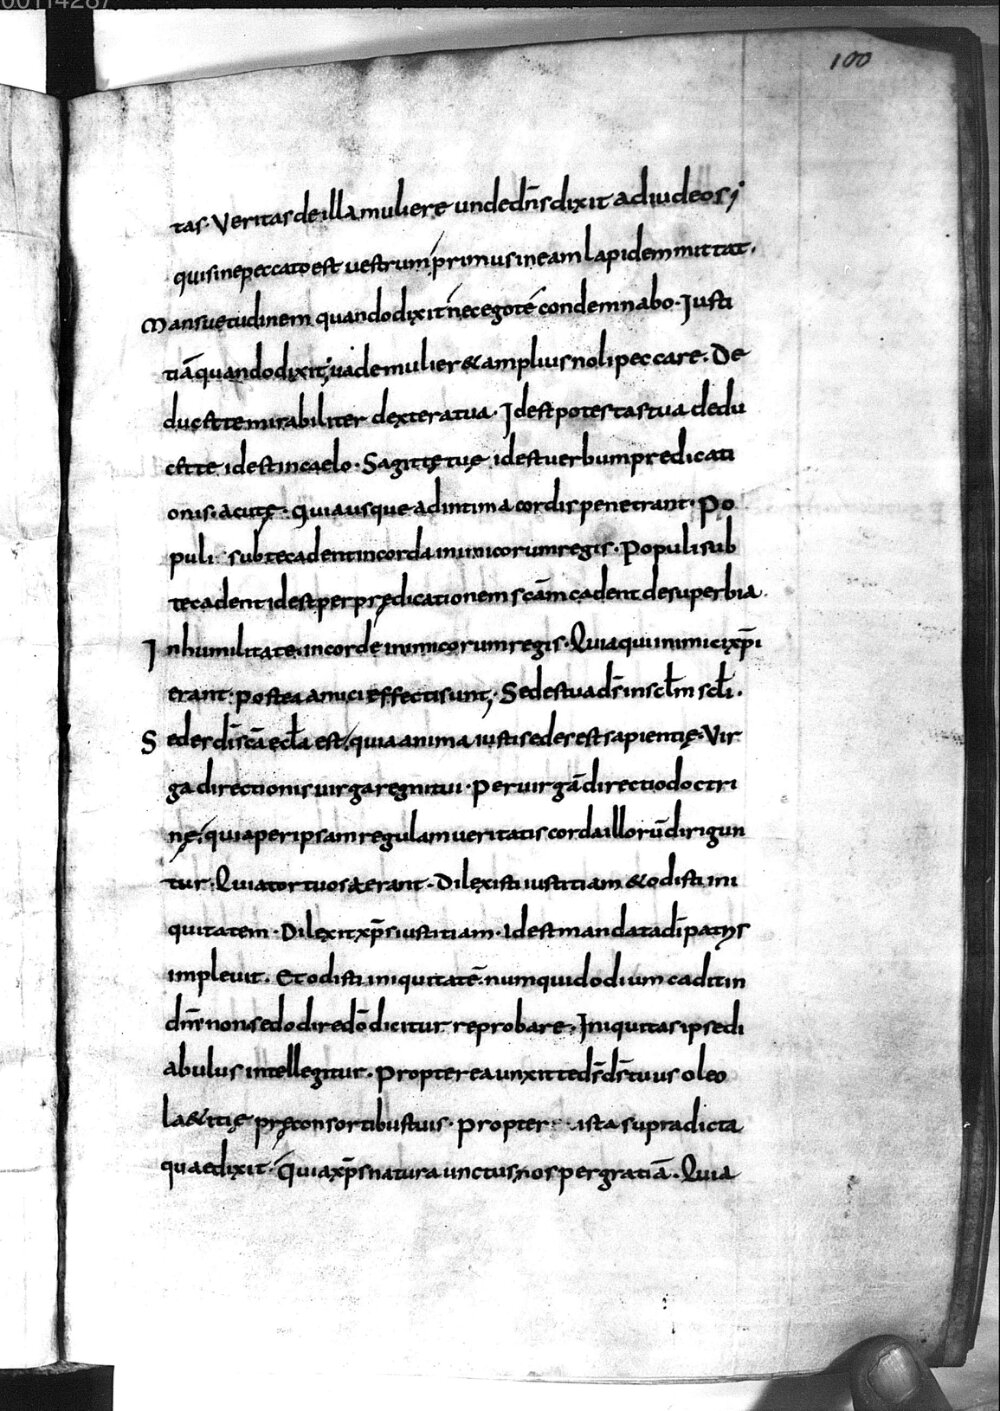 00114287
100
tas. Veritas de illa muliere unde dn̄s dixit ad iudeos;
qui sine peccato est uestrum primus in eam lapidem mittat.
Mansuetudinem quando dixit nec ego te condemnabo. Iusti
tiā quando dixit; uade mulier & amplius noli peccare. De
ducet te mirabiliter dextera tua. Id est potestas tua dedu
cet te id est in caelo. Sagittę tuę id est uerbum predicati
onis. acutę. Quia usque ad intima cordis penetrant. Po
puli sub te cadent in corda inimicorum regis. Populi sub
te cadent id est per prędicationem scām cadent de superbia
In humilitate. in corde inimicorum regis. Quia qui inimici xp̄i
erant. postea amici effecti sunt; Sedes tua ds̄ in sclm̄ sclī.
Sedes dī scā eclā est. quia anima iusti sedes est sapientię. Vir
ga directionis uirga regni tui. Per uirgā directio doctri
nę. quia per ipsam regulam ueritatis corda illorū dirigun
tur. Quia tortuosa erant. Dilexisti iustitiam & odisti ini
quitatem. Dilexit xp̄s iustitiam. Id est mandata dī patris
impleuit. Et odisti iniquitatē. numquid odium cadit in
dn̄m non. sed odire dō dicitur reprobare. Iniquitas ipse di
abulus intellegitur. Propterea unxit te ds̄ ds̄ tuus oleo
la&itię prę consortibus tuis. Propter ista supradicta
quae dixit. Quia xp̄s natura unctus, nos per gratiā. Quia